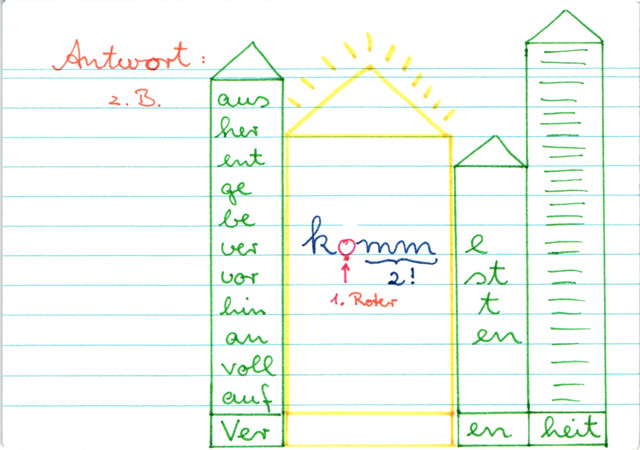 Antwort:
z. B.
aus
her
ent
ge
be
ver
vor
hin
an
voll
auf
Ver
komm
2!
1. Roter
e
st
t
en
en
heit